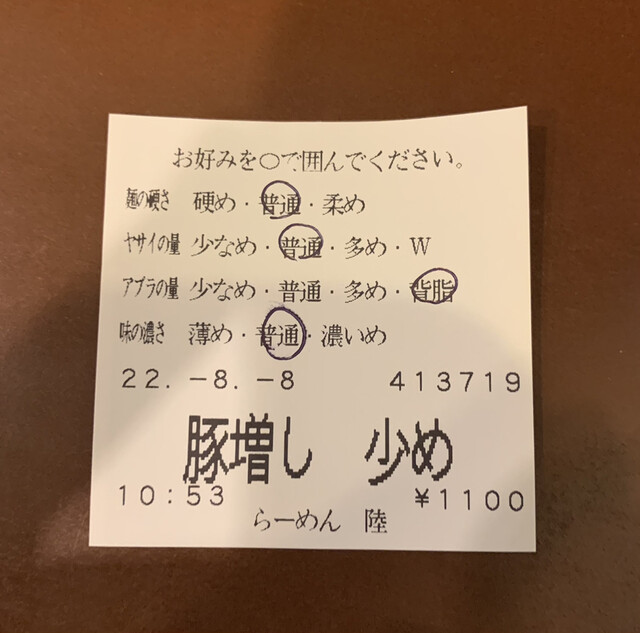 お好みを○で囲んでください。
麺の硬さ 硬め・普通・柔め
ヤサイの量 少なめ・普通・多め・W
アブラの量 少なめ・普通・多め・背脂
味の濃さ 薄め・普通・濃いめ
22.-8.-8 413719
豚増し 少め
10:53 ¥1100
らーめん 陸